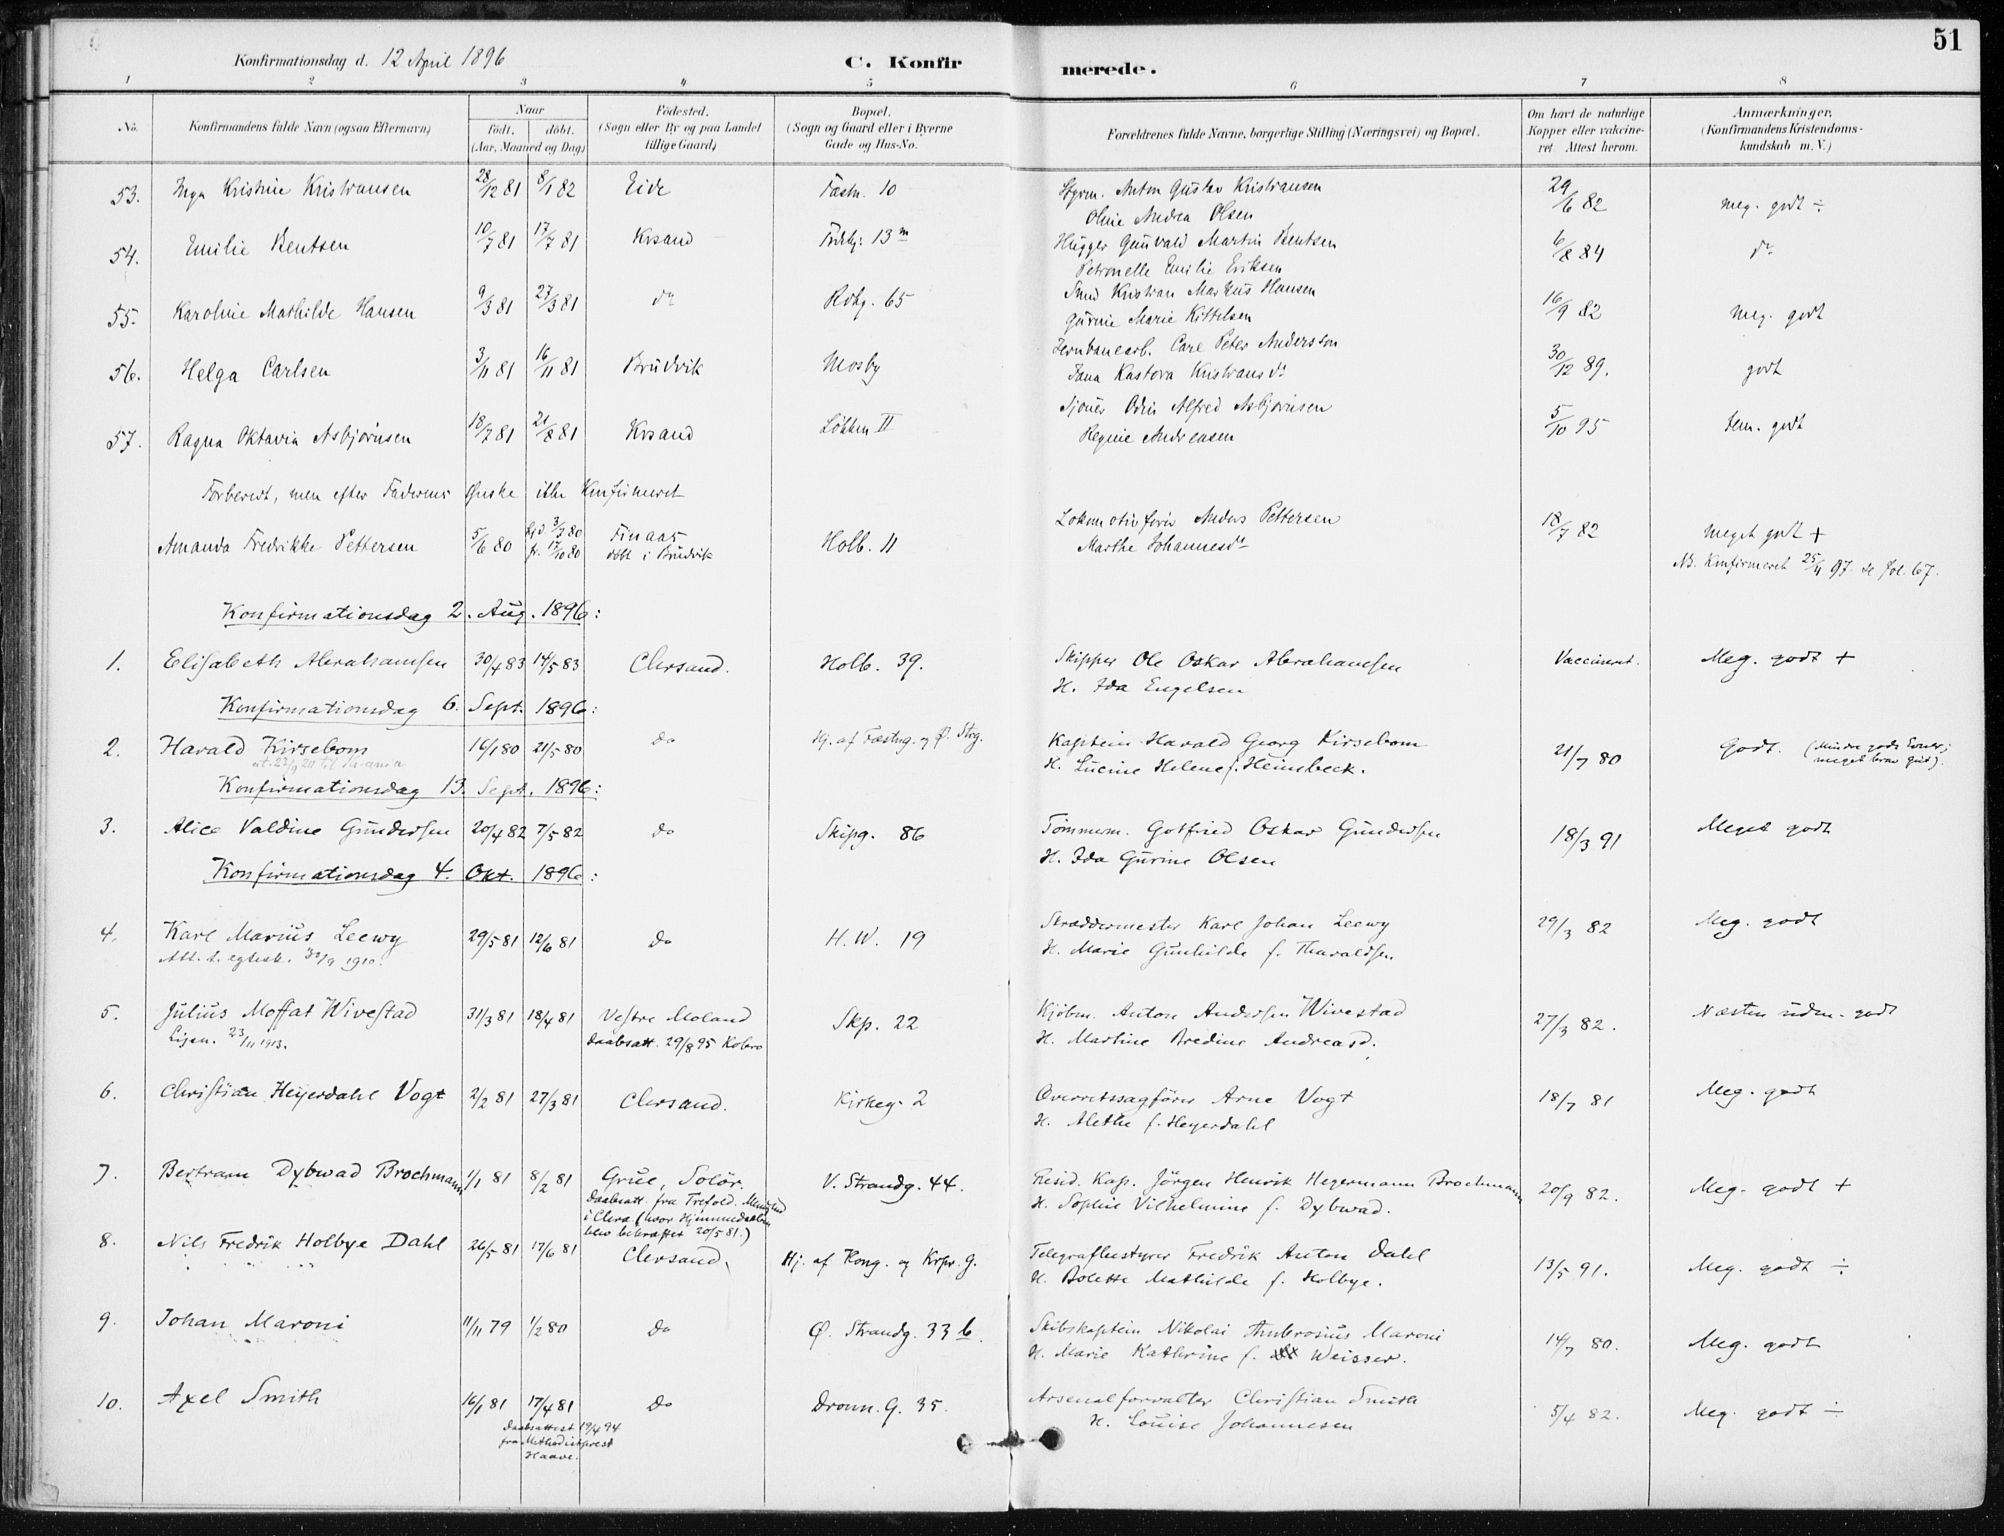 51
Konfirmationsdag d. 12 April 1896
C. Konfir merede.
1 2 3 4 5 6 7 8
No. Konfirmandens fulde Navn (ogsaa Efternavn) Naar født. døbt. (Aar, Maaned og Dag) Fødested. (Sogn eller By og paa Landet tillige Gaard) Bopæl. (Sogn og Gaard eller i Byerne Gade og Hus-No. Forældrenes fulde Navne, borgerlige Stilling (Næringsvei) og Bopæl. Om havt de naturlige Kopper eller vakcineret. Attest herom. Anmærkninger. (Konfirmandens Kristendomskundskab m. V.)
53. Inga Kristine Kristiansen 28/12 81 8/1 82 Eide Fæstn. 10 Styrm. Anton Gustav Kristiansen 29/6 82 meg. godt ÷
Oline Andrea Olsen
54. Emilie Bentsen 10/7 81 17/7 81 Krsand 13 m Hugger Gunvald Martin Bentsen 6/8 84 do
Petronelle Emilie Eriksen
55. Karoline Mathilde Hansen 9/3 81 27/3 81 do Rdhg. 65 Smed Kristian Markus Hansen 16/9 82 meg. godt
Gurine Marie Kittelsen
56. Helga Carlsen 3/11 81 16/11 81 Brudvik Mosby Jernbanearb. Carl Peter Andersson 30/12 89. godt
Jana Kastora Kristiansdt
57. Ragna Oktavia Asbjørnsen 18/7 81 21/8 81 Krsand Løkken II Sjøm. Odin Alfred Asbjørnsen 5/10 95 tem. godt
Regine Andreasen
Forberedt, men efter Faderens Ønske ikke Konfirmeret
Amanda Fredrikke Pettersen 5/6 80 hjd 3/7 80 Finaas Holb. 11 Lokomotivfører Anders Pettersen 18/7 82 meget godt +
k. 17/10 80 døbt i Brudvik Marthe Johannesdt
NB. Konfirmeret 25/4 97. se fol. 67.
Konfirmationsdag 2. Aug. 1896:
1. Elisabeth Abrahamsen 30/4 83 14/5 83 Chrsand. Holb. 39. Skipper Ole Oskar Abrahamsen Vaccineret. Meg. godt +
H. Ida Engelsen
Konfirmationsdag 6. Sept. 1896:
2. Harald Kirsebom 16/1 80 21/5 80 do Hj. af Fæstng. og Ø. Strg. Kaptein Harald Georg Kirsebom 21/7 80 Godt. (Mindre gode Evner; meget brav gut).
H. Lucine Helene f. Heinsbeck.
Konfirmationsdag 13. Sept. 1896:
3. Alice Valdine Gundersen 20/4 82 7/5 82 do Skipg. 86 Tømmerm. Gotfried Oskar Gundersen 18/3 91 Meget godt
H. Ida Gurine Olsen
Konfirmationsdag 4. Okt. 1896:
4. Karl Marius Leewy 29/5 81 12/6 81 do H.W. 19 Skræddermester Karl Johan Leewy 29/3 82 Meg. godt
Att. t. egtesk. 30/9 1910. H. Marie Gunhilde f. Tharaldsen
5. Julius Moffat Wivestad 31/3 81 18/4 81 Vestre Moland Skp. 22 Kjøbm. Anton Andersen Wivestad 27/3 82. Næsten udm. godt
Ligen. 23/11 1913. Daabsatt. 29/8 95 Kobro H. Martine Bredine Andreasd.
6. Christian Heyerdahl Vogt 2/2 81 27/3 81 Chrsand. Kirkeg. 2 Overretssagfører Arne Vogt 18/7 81 Meg. godt
H. Alethe f. Heyerdahl
7. Bertram Dybwad Brochmann 1/1 81 8/2 81 Grue, Solør. V. Strandg. 44. Resid. Kap. Jörgen Henrik Hegermann Brochmann 20/9 82. Meg. godt +
Daabsatt. fra Trefold. Menighed i Chra (hvor Hjemmedaaben blev bekræftet 20/5 81.) H. Sophie Vilhelmine f. Dybwad.
8. Nils Fredrik Holbye Dahl 26/5 81 17/6 81 Chrsand. Hj. af Kong. og Krpr. G. Telegrafbestyrer Fredrik Anton Dahl 13/5 91. Meg. godt ÷
H. Bolette Mathilde f. Holbye.
9. Johan Maroni 11/11 79 1/2 80 do Ø. Strandg. 33 b. Skibskaptein Nikolai Ambrosius Maroni 14/7 80. Meg. godt
H. Marie Kathrine f. Weisser.
10. Axel Smith 16/1 81 17/4 81 do Dronn. G. 35. Arsenalforvalter Christian Smith 5/4 82. Meg. godt ÷
Daabsattest 19/4 94 fra Methodistprest Haave. H. Louise Johannesen